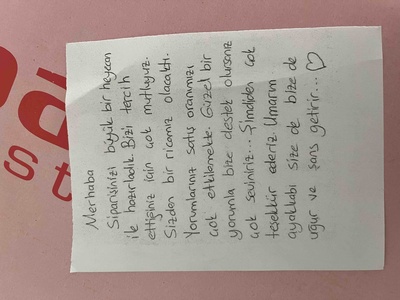 Merhaba
Siparişinizi büyük bir heyecan
ile hazırladık. Bizi tercih
ettiğiniz için çok mutluyuz.
Sizden bir ricamız olacaktı.
Yorumlarınız satış oranımızı
çok etkilemekte. Güzel bir
yorumla bize destek olursanız
çok seviniriz... Şimdiden çok
teşekkür ederiz. Umarım
ayakkabı size de bize de
uğur ve şans getirir... ♡
st